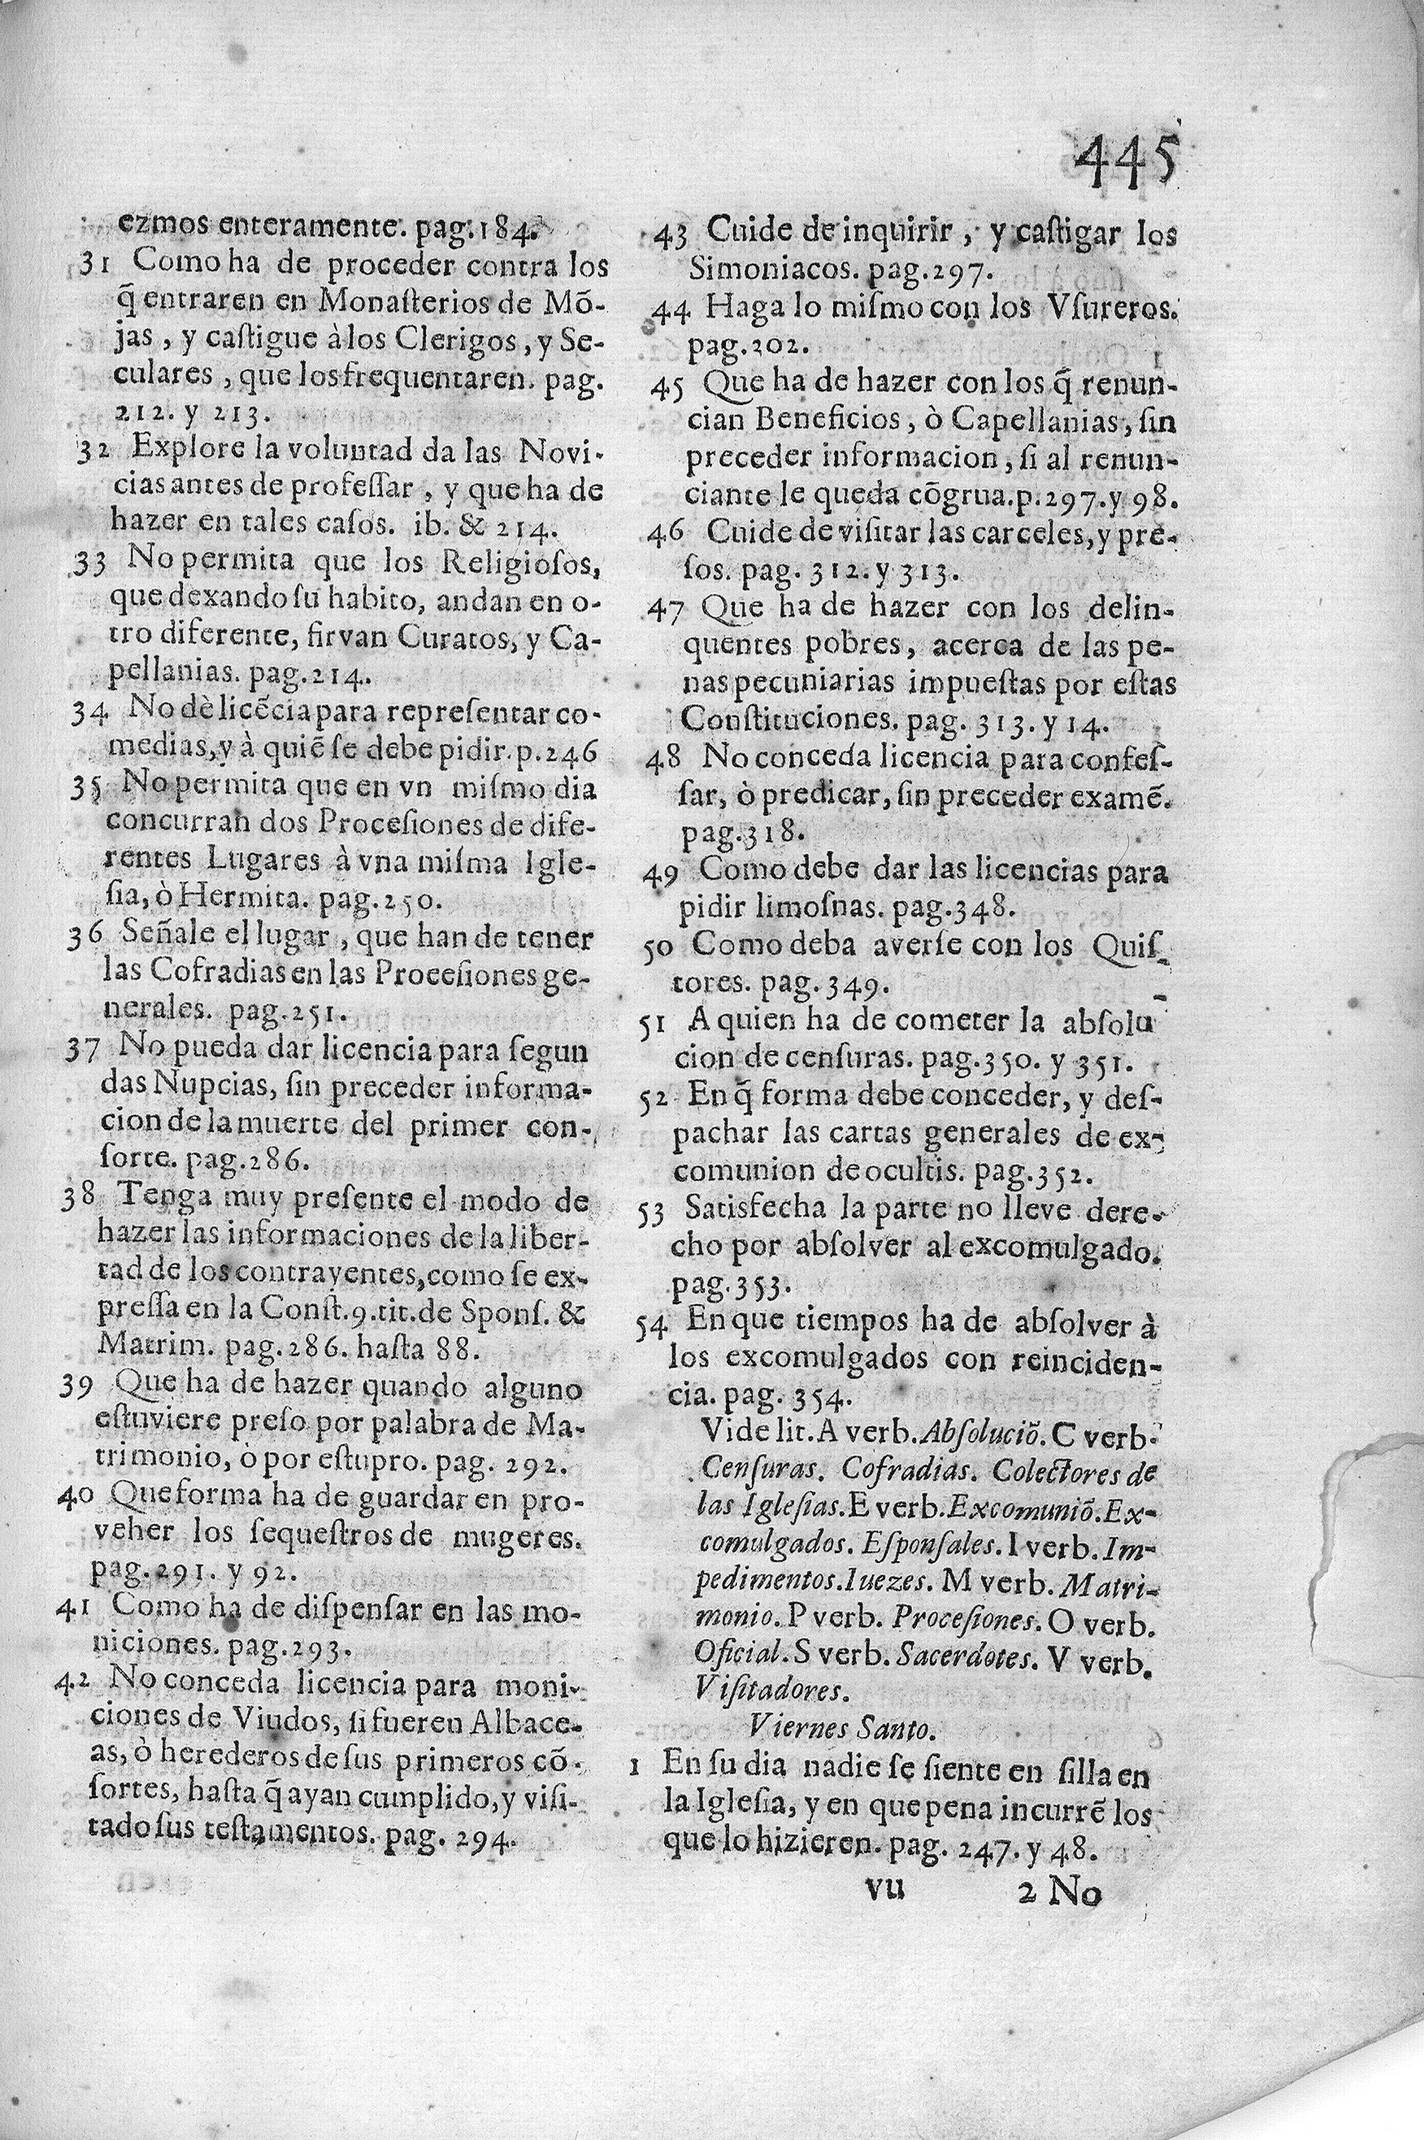 445
ezmos enteramente. pag.184.
31 Como ha de proceder contra los
q̃ entraren en Monasterios de Mõ-
jas, y castigue à los Clerigos, y Se-
culares, que los frequentaren. pag.
212. y 213.
32 Explore la voluntad da las Novi-
cias antes de professar, y que ha de
hazer en tales casos. ib. & 214.
33 No permita que los Religiosos,
que dexando su habito, andan en o-
tro diferente, sirvan Curatos, y Ca-
pellanias. pag.214.
34 No dè licẽcia para representar co-
medias, y à quiẽ se debe pidir. p.246
35 No permita que en vn mismo dia
concurran dos Procesiones de dife-
rentes Lugares à vna misma Igle-
sia, ò Hermita. pag.250.
36 Señale el lugar, que han de tener
las Cofradias en las Procesiones ge-
nerales. pag.251.
37 No pueda dar licencia para segun
das Nupcias, sin preceder informa-
cion de la muerte del primer con-
sorte. pag.286.
38 Tenga muy presente el modo de
hazer las informaciones de la liber-
tad de los contrayentes, como se ex-
pressa en la Const.9.tit.de Spons. &
Matrim. pag.286. hasta 88.
39 Que ha de hazer quando alguno
estuviere preso por palabra de Ma-
trimonio, ò por estupro. pag. 292.
40 Que forma ha de guardar en pro-
veher los sequestros de mugeres.
pag.291. y 92.
41 Como ha de dispensar en las mo-
niciones. pag.293.
42 No conceda licencia para moni-
ciones de Viudos, si fueren Albace-
as, ò herederos de sus primeros cõ-
sortes, hasta q̃ ayan cumplido, y visi-
tado sus testamentos. pag. 294.
43 Cuide de inquirir, y castigar los
Simoniacos. pag.297.
44 Haga lo mismo con los Vsureros.
pag.202.
45 Que ha de hazer con los q̃ renun-
cian Beneficios, ò Capellanias, sin
preceder informacion, si al renun-
ciante le queda cõgrua. p.297. y 98.
46 Cuide de visitar las carceles, y pre-
sos. pag. 312. y 313.
47 Que ha de hazer con los delin-
quentes pobres, acerca de las pe-
nas pecuniarias impuestas por estas
Constituciones. pag. 313. y 14.
48 No conceda licencia para confes-
sar, ò predicar, sin preceder examẽ.
pag.318.
49 Como debe dar las licencias para
pidir limosnas. pag.348.
50 Como deba averse con los Quis-
tores. pag.349.
51 A quien ha de cometer la absolu-
cion de censuras. pag.350. y 351.
52 En q̃ forma debe conceder, y des-
pachar las cartas generales de ex-
comunion de ocultis. pag.352.
53 Satisfecha la parte no lleve dere-
cho por absolver al excomulgado.
pag.353.
54 En que tiempos ha de absolver à
los excomulgados con reinciden-
cia. pag. 354.
Vide lit. A verb. Absoluciõ. C verb.
Censuras. Cofradias. Colectores de
las Iglesias. E verb. Excomuniõ. Ex-
comulgados. Esponsales. I verb. Im-
pedimentos. Iuezes. M verb. Matri-
monio. P verb. Procesiones. O verb.
Oficial. S verb. Sacerdotes. V verb.
Visitadores.
Viernes Santo.
1 En su dia nadie se siente en silla en
la Iglesia, y en que pena incurrẽ los
que lo hizieren. pag. 247. y 48.
vu 2 No